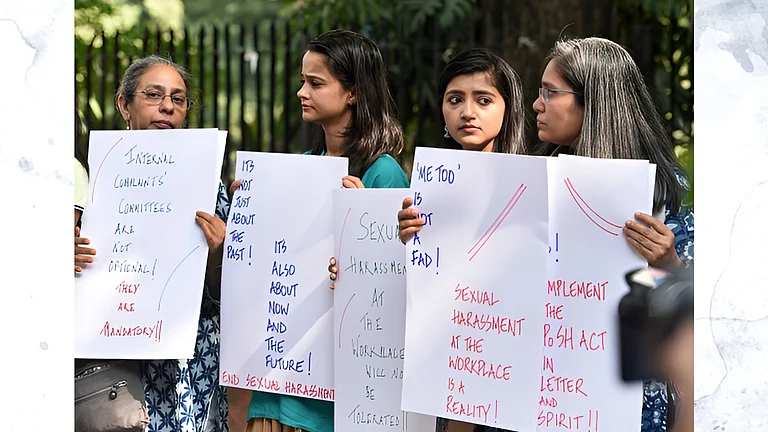 INTERNAL
COMPLAINTS'
COMMITTEES
ARE
NOT
OPTIONAL!
THEY
ARE
MANDATORY!!
ITS
NOT
JUST
ABOUT
THE
PAST!
ITS
ALSO
ABOUT
NOW
AND
THE
FUTURE!
END SEXUAL HARASSMENT
SEXUA
HARASSMEN
AT
THE
WORKPLACE
WILL NO
BE
TOLERATED
'ME TOO'
IS
NOT
A
FAD!
SEXUAL
HARASSMENT
AT THE
WORKPLACE
IS A
REALITY!
!
MPLEMENT
THE
PoSH ACT
IN
LETTER
AND
SPIRIT!!